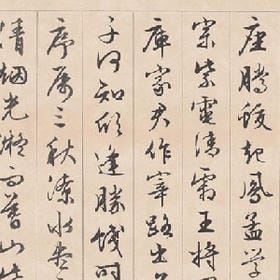 座騰蛟起鳳孟學
宗紫電清霜王將
庫家君作宰路出
子何知躬逢勝餞時
序屬三秋潦水盡
清烟光凝而暮山